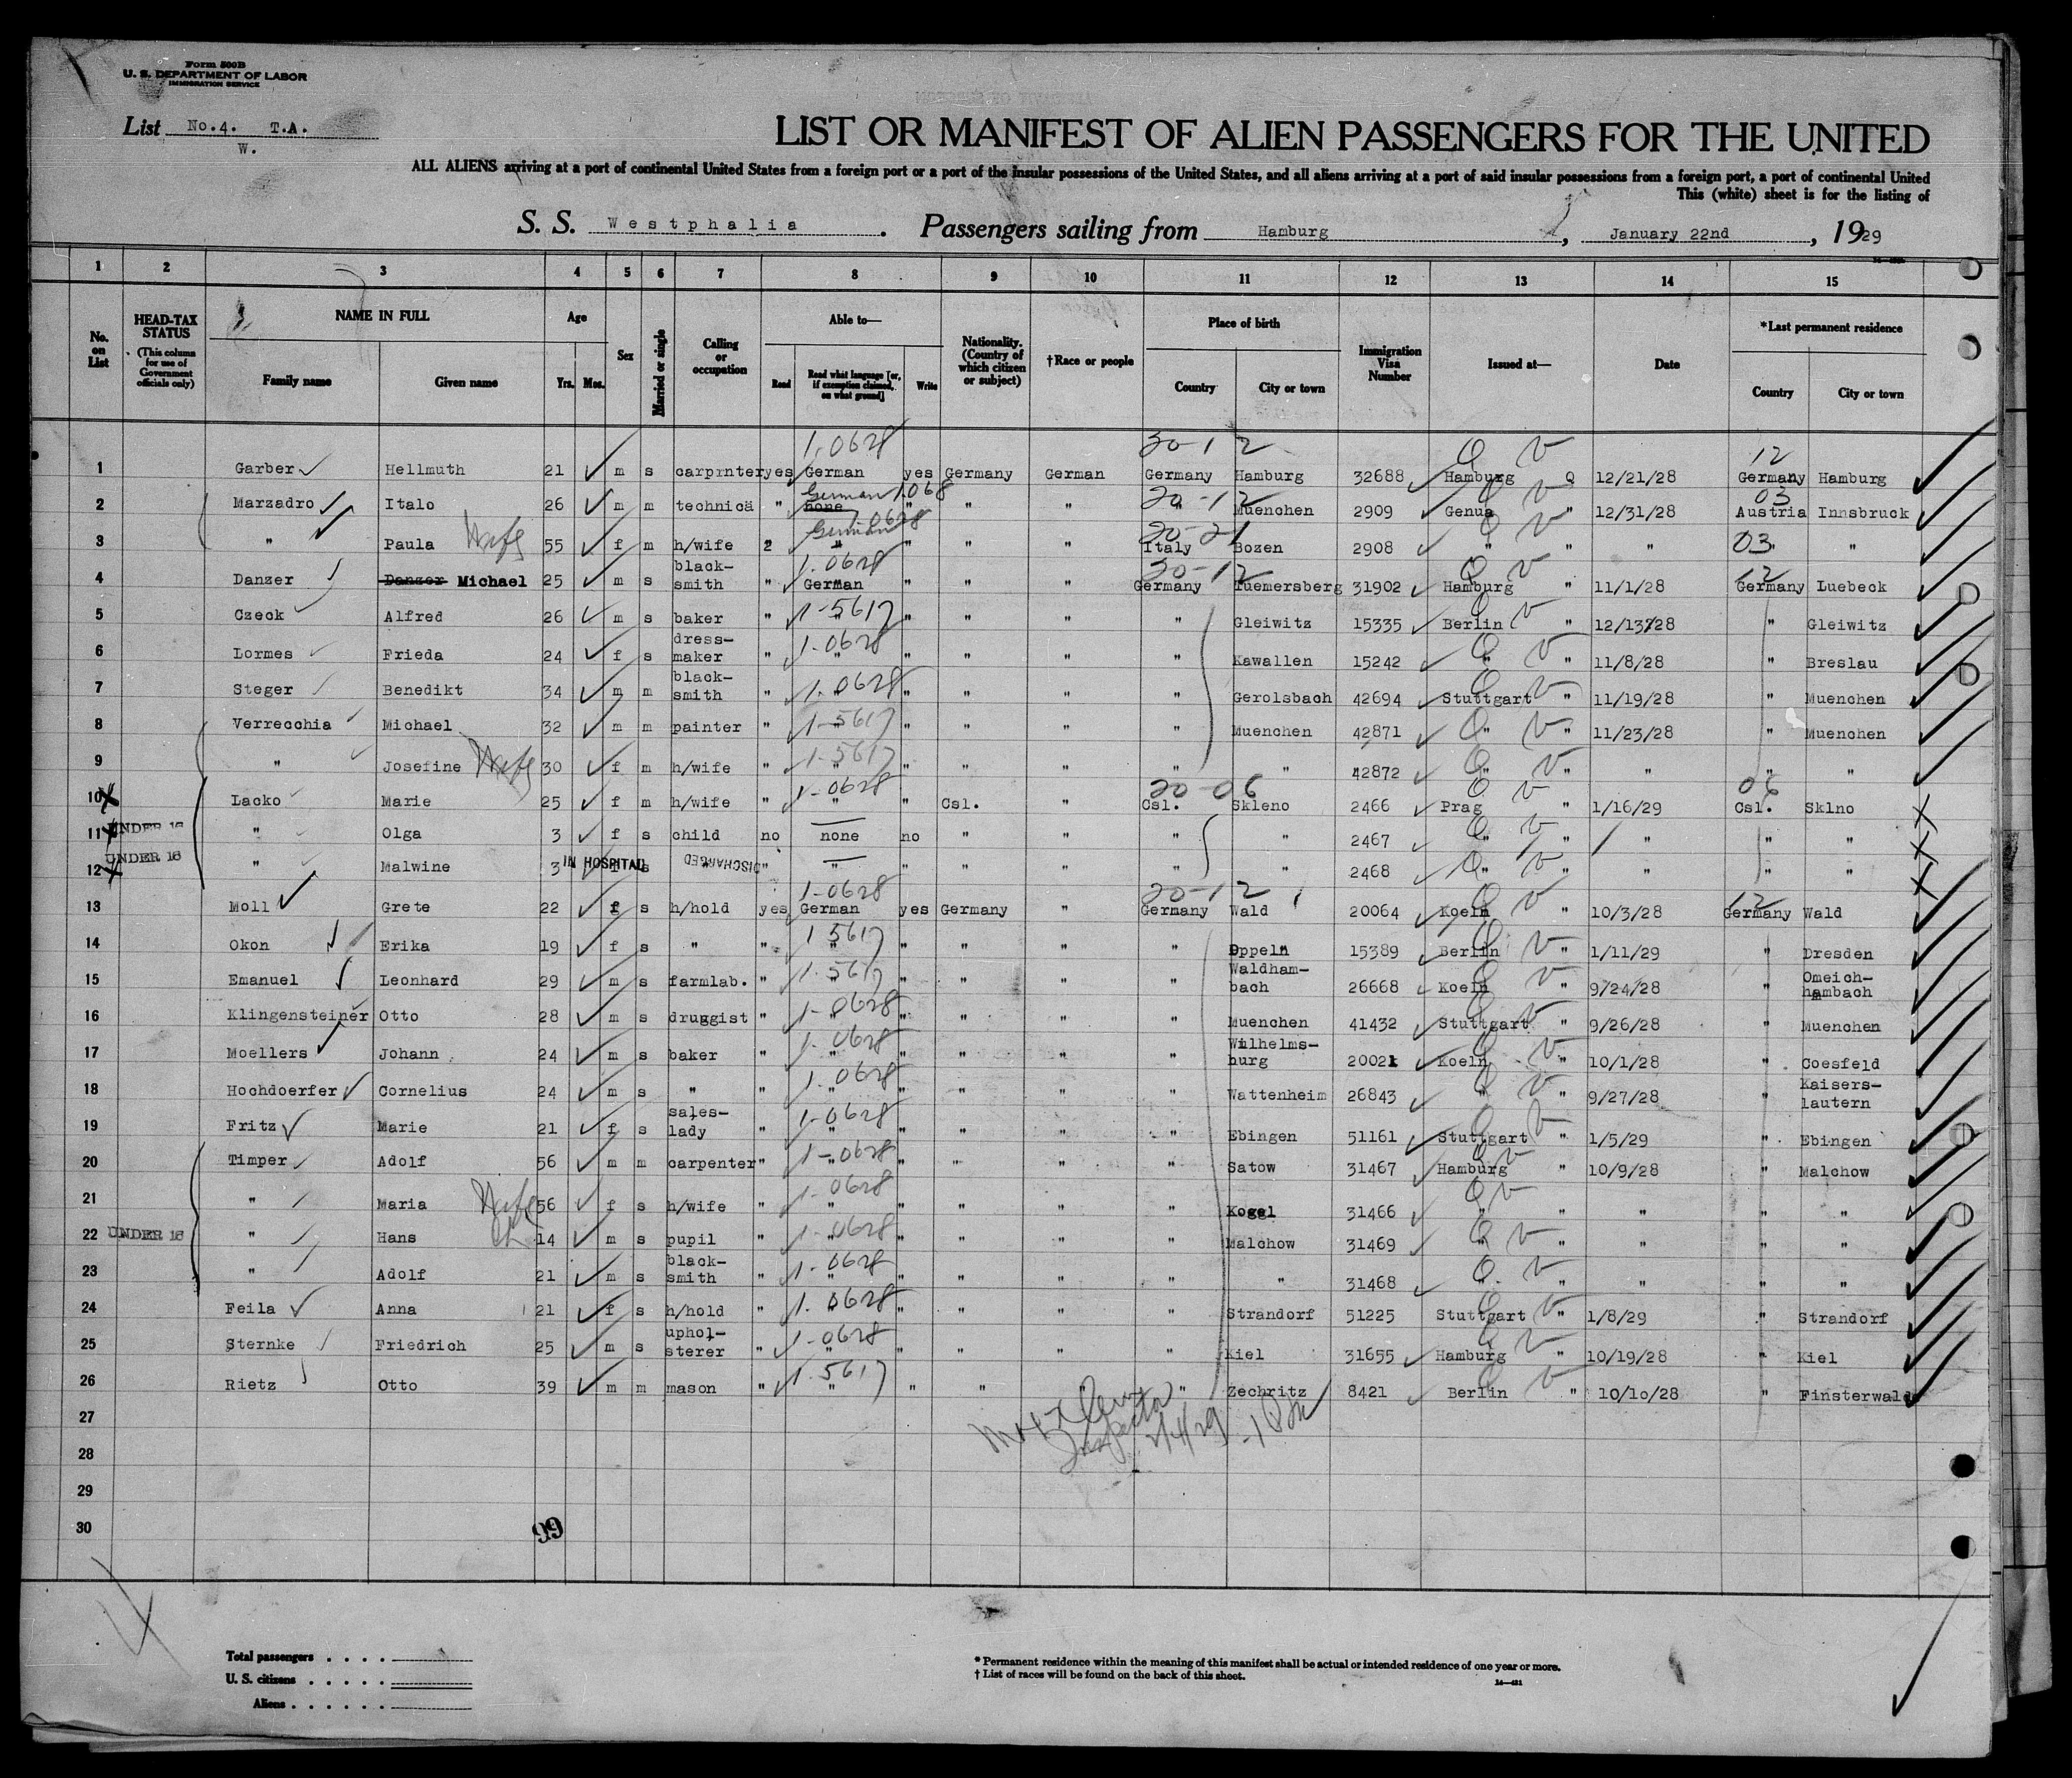 Form 500B
U. S. DEPARTMENT OF LABOR
IMMIGRATION SERVICE
List No.4. T.A.
W.
LIST OR MANIFEST OF ALIEN PASSENGERS FOR THE UNITED
ALL ALIENS arriving at a port of continental United States from a foreign port or a port of the insular possessions of the United States, and all aliens arriving at a port of said insular possessions from a foreign port, a port of continental United
This (white) sheet is for the listing of
S. S. Westphalia . Passengers sailing from Hamburg , January 22nd , 1929
1 2 3 4 5 6 7 8 9 10 11 12 13 14 15
No. on List
HEAD-TAX STATUS
(This column for use of Government officials only)
NAME IN FULL
Family name Given name
Age
Yrs. Mos.
Sex
Married or single
Calling or occupation
Able to—
Read
Read what language [or, if exemption claimed, on what ground]
Write
Nationality. (Country of which citizen or subject)
†Race or people
Place of birth
Country City or town
Immigration Visa Number
Issued at—
Date
*Last permanent residence
Country City or town
1-0628 20-12 12
1 Garber Hellmuth 21 m s carpnter yes German yes Germany German Germany Hamburg 32688 Hamburg Q 12/21/28 Germany Hamburg
German 1.068 20-12 03
2 Marzadro Italo 26 m m technicä " none " " " " Muenchen 2909 Genua " 12/31/28 Austria Innsbruck
German 0628 20-21 03
3 " Paula Wife 55 f m h/wife 2 " " " " Italy Bozen 2908 " " " " "
1.0628 20-12 12
4 Danzer Danzer Michael 25 m s black-smith " German " " " Germany Tuemersberg 31902 Hamburg " 11/1/28 Germany Luebeck
1-5617
5 Czeck Alfred 26 m s baker " " " " " " Gleiwitz 15335 Berlin " 12/13/28 " Gleiwitz
1-0628
6 Lormes Frieda 24 f s dress-maker " " " " " " Kawallen 15242 " " 11/8/28 " Breslau
1.0628
7 Steger Benedikt 34 m m black-smith " " " " " " Gerolsbach 42694 Stuttgart " 11/19/28 " Muenchen
1-5617
8 Verrecchia Michael 32 m m painter " " " " " " Muenchen 42871 " " 11/23/28 " Muenchen
1-5617
9 " Josefine Wife 30 f m h/wife " " " " " " " 42872 " " " " "
1-0628 20-06 06
10 Lacko Marie 25 f m h/wife " " " Csl. " Csl. Skleno 2466 Prag " 1/16/29 Csl. Sklno
11 UNDER 16 " Olga 3 f s child no none no " " " " 2467 " " " " "
12 UNDER 16 " Malwine 3 IN HOSPITAL f s DISCHARGED " " " " " " " 2468 " " " " "
1-0628 20-12 12
13 Moll Grete 22 f s h/hold yes German yes Germany " Germany Wald 20064 Koeln 10/3/28 Germany Wald
1 5617
14 Okon Erika 19 f s " " " " " " " Oppeln 15389 Berlin " 1/11/29 " Dresden
1-5617
15 Emanuel Leonhard 29 m s farmlab. " " " " " " Waldham-bach 26668 Koeln " 9/24/28 " Omeich-hambach
1-0628
16 Klingensteiner Otto 28 m s druggist " " " " " " Muenchen 41432 Stuttgart " 9/26/28 " Muenchen
1-0628
17 Moellers Johann 24 m s baker " " " " " " Wilhelms-burg 20021 Koeln " 10/1/28 " Coesfeld
1.0628
18 Hochdoerfer Cornelius 24 m s " " " " " " " Wattenheim 26843 " " 9/27/28 " Kaisers-lautern
1-0628
19 Fritz Marie 21 f s sales-lady " " " " " " Ebingen 51161 Stuttgart " 1/5/29 " Ebingen
1-0628
20 Timper Adolf 56 m m carpenter " " " " " " Satow 31467 Hamburg " 10/9/28 " Malchow
1-0628
21 " Maria Wife 56 f s h/wife " " " " " " Kogel 31466 " " " " "
1-0628
22 UNDER 16 " Hans ch 14 m s pupil " " " " " " Malchow 31469 " " " " "
1-0628
23 " Adolf 21 m s black-smith " " " " " " " 31468 " " " " "
1.0628
24 Feila Anna 21 f s h/hold " " " " " " Strandorf 51225 Stuttgart " 1/8/29 " Strandorf
1-0628
25 Sternke Friedrich 25 m s uphol-sterer " " " " " " Kiel 31655 Hamburg " 10/19/28 " Kiel
1.5617
26 Rietz Otto 39 m m mason " " " " " " Zechritz 8421 Berlin " 10/10/28 " Finsterwalde
27
Inspector 2/4/29
28
29
30
99
4
Total passengers . . . .
U. S. citizens . . . . .
Aliens . . . . . .
* Permanent residence within the meaning of this manifest shall be actual or intended residence of one year or more.
† List of races will be found on the back of this sheet.
14—421